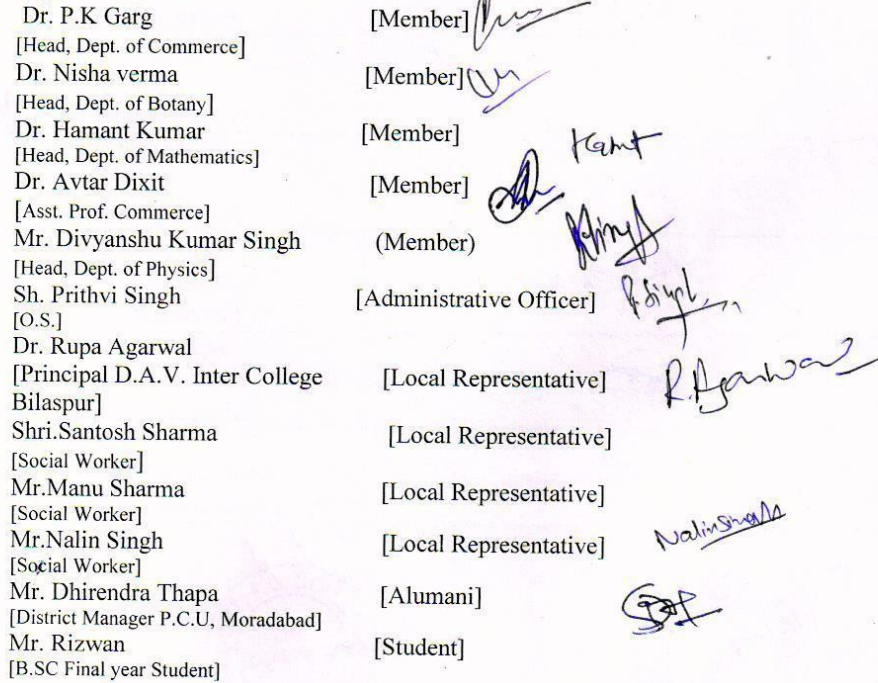 Dr. P.K Garg [Member]
[Head, Dept. of Commerce]
Dr. Nisha verma [Member]
[Head, Dept. of Botany]
Dr. Hamant Kumar [Member]
[Head, Dept. of Mathematics]
Dr. Avtar Dixit [Member]
[Asst. Prof. Commerce]
Mr. Divyanshu Kumar Singh (Member)
[Head, Dept. of Physics]
Sh. Prithvi Singh [Administrative Officer] P. Singh
[O.S.]
Dr. Rupa Agarwal
[Principal D.A.V. Inter College [Local Representative] R. Agarwal
Bilaspur]
Shri.Santosh Sharma [Local Representative]
[Social Worker]
Mr.Manu Sharma [Local Representative]
[Social Worker]
Mr.Nalin Singh [Local Representative] Nalin Singh
[Social Worker]
Mr. Dhirendra Thapa [Alumani]
[District Manager P.C.U, Moradabad]
Mr. Rizwan [Student]
[B.SC Final year Student]